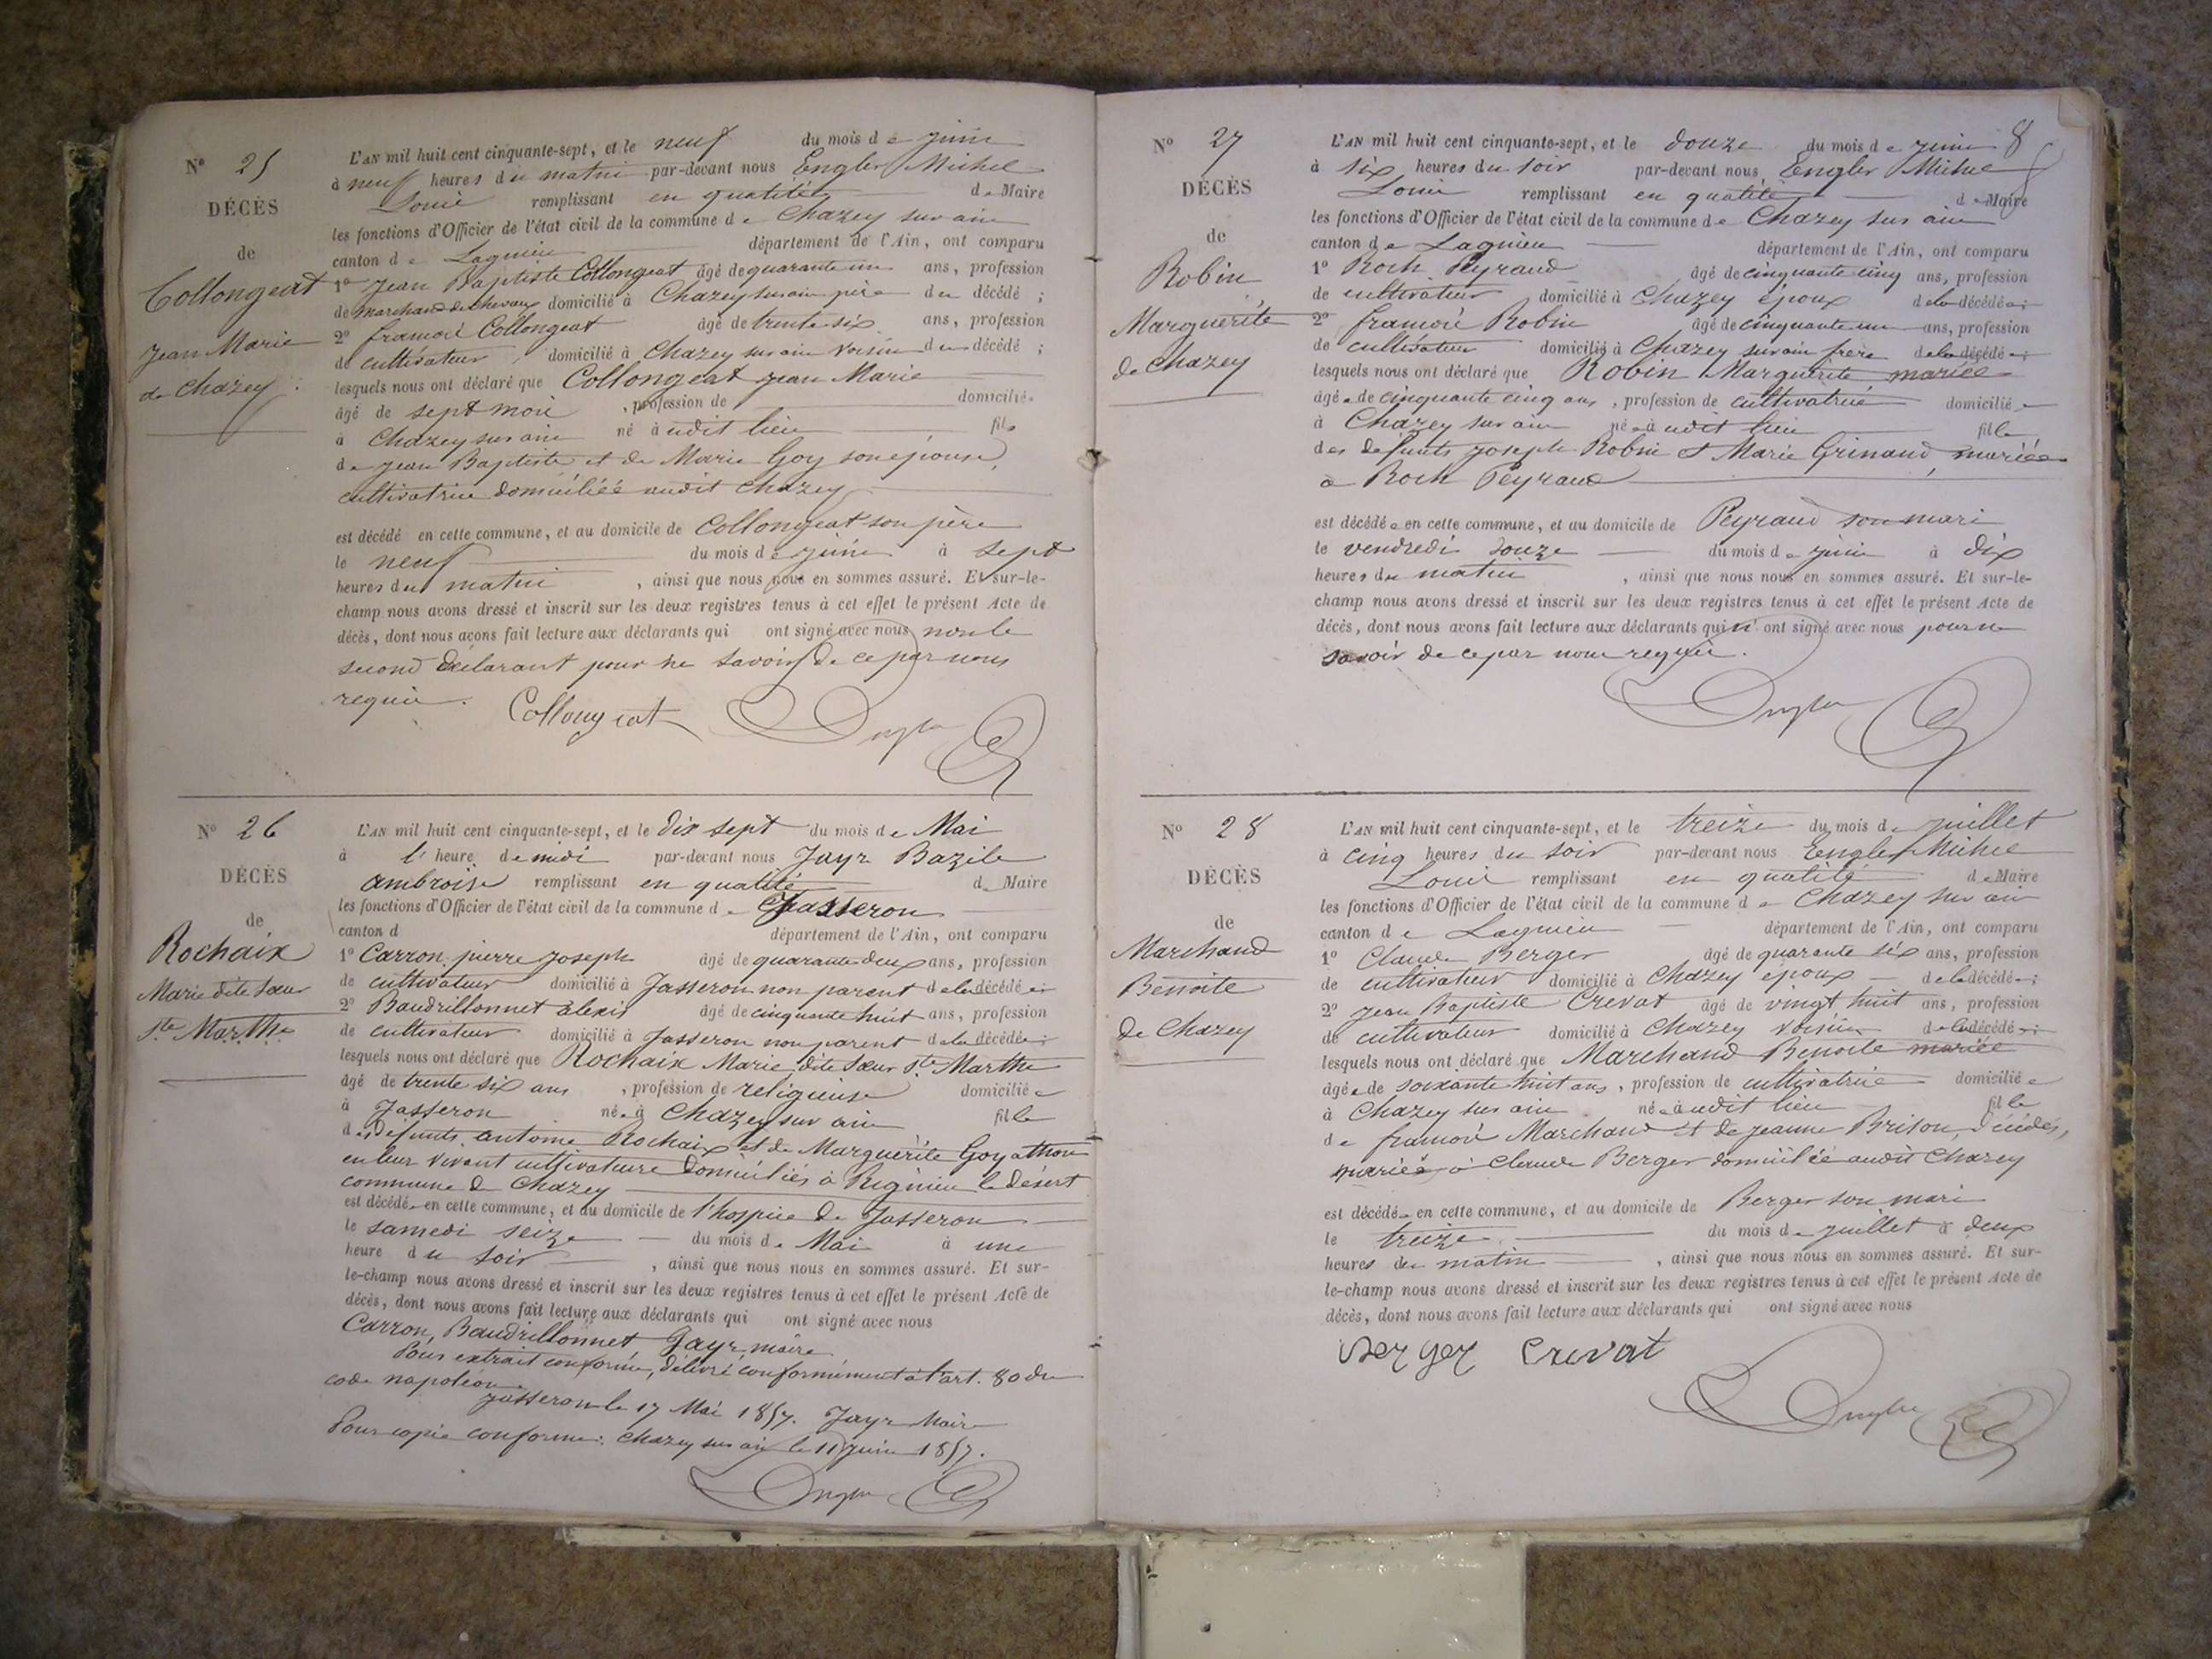 N° 25
DÉCÈS
de
Collongeat
Jean Marie
de Chazey
L'AN mil huit cent cinquante-sept, et le neuf du mois de juin
à neuf heures du matin par-devant nous Engler Michel
Louis remplissant en qualité de Maire
les fonctions d'Officier de l'état civil de la commune de Chazey sur ain
canton de Lagnieu département de l'Ain, ont comparu
1° Jean Baptiste Collongeat âgé de quarante un ans, profession
de marchand de chevaux domicilié à Chazey sur ain père du décédé ;
2° françois Collongeat âgé de trente six ans, profession
de cultivateur, domicilié à Chazey sur ain voisin du décédé ;
lesquels nous ont déclaré que Collongeat jean Marie
âgé de sept mois , profession de domicilié
à Chazey sur ain né audit lieu fils
de jean Baptiste et de Marie Goy son épouse,
cultivatrice domiciliée audit Chazey
est décédé en cette commune, et au domicile de Collongeat son père
le neuf du mois de juin à sept
heures du matin , ainsi que nous nous en sommes assuré. Et sur-le-
champ nous avons dressé et inscrit sur les deux registres tenus à cet effet le présent Acte de
décès, dont nous avons fait lecture aux déclarants qui ont signé avec nous non le
second déclarant pour ne savoir de ce par nous
requis. Collongeat Engler
N° 26
DÉCÈS
de
Rochaix
Marie dite Sœur
Ste Marthe
L'AN mil huit cent cinquante-sept, et le dix sept du mois de Mai
à l' heure de midi par-devant nous Jayr Bazile
Ambroise remplissant en qualité de Maire
les fonctions d'Officier de l'état civil de la commune de Jasseron
canton d département de l'Ain, ont comparu
1° Carron pierre joseph âgé de quarante deux ans, profession
de cultivateur domicilié à Jasseron non parent de la décédée ;
2° Baudrillonnet alexis âgé de cinquante huit ans, profession
de cultivateur domicilié à Jasseron non parent de la décédée ;
lesquels nous ont déclaré que Rochaix Marie, dite Sœur Ste Marthe
âgé de trente six ans , profession de religieuse domiciliée
à Jasseron née à Chazey sur ain fille
des défunts antoine Rochaix et de Marguerite Goyathon
en leur vivant cultivateurs domiciliés à Rignieu le désert
commune de Chazey
est décédée en cette commune, et au domicile de l'hospice de Jasseron
le samedi seize du mois de Mai à une
heure du soir , ainsi que nous nous en sommes assuré. Et sur-
le-champ nous avons dressé et inscrit sur les deux registres tenus à cet effet le présent Acte de
décès, dont nous avons fait lecture aux déclarants qui ont signé avec nous
Carron, Baudrillonnet Jayr maire
Pour extrait conforme, délivré conformément à l'art. 80 du
code napoléon
Jasseron le 17 Mai 1857. Jayr Maire
Pour copie conforme : Chazey sur ain le 11 juin 1857.
Engler
N° 27
DÉCÈS
de
Robin
Marguerite
de Chazey
8
L'AN mil huit cent cinquante-sept, et le douze du mois de juin
à six heures du soir par-devant nous Engler Michel
Louis remplissant en qualité de Maire
les fonctions d'Officier de l'état civil de la commune de Chazey sur ain
canton de Lagnieu département de l'Ain, ont comparu
1° Roch Peyraud âgé de cinquante cinq ans, profession
de cultivateur domicilié à Chazey époux de la décédée ;
2° françois Robin âgé de cinquante un ans, profession
de cultivateur domicilié à Chazey sur ain frère de la décédée ;
lesquels nous ont déclaré que Robin Marguerite mariée
âgée de cinquante cinq ans, profession de cultivatrice domiciliée
à Chazey sur ain née audit lieu fille
des défunts joseph Robin et Marie Grinand, mariée
à Roch Peyraud
est décédée en cette commune, et au domicile de Peyraud son mari
le vendredi douze du mois de juin à dix
heures du matin , ainsi que nous nous en sommes assuré. Et sur-le-
champ nous avons dressé et inscrit sur les deux registres tenus à cet effet le présent Acte de
décès, dont nous avons fait lecture aux déclarants qui n' ont signé avec nous pour ne
savoir de ce par nous requis.
Engler
N° 28
DÉCÈS
de
Marchand
Benoite
de Chazey
L'AN mil huit cent cinquante-sept, et le treize du mois de juillet
à cinq heures du soir par-devant nous Engler Michel
Louis remplissant en qualité de Maire
les fonctions d'Officier de l'état civil de la commune de Chazey sur ain
canton de Lagnieu département de l'Ain, ont comparu
1° Claude Berger âgé de quarante six ans, profession
de cultivateur domicilié à Chazey époux de la décédée ;
2° jean Baptiste Crevat âgé de vingt huit ans, profession
de cultivateur domicilié à Chazey voisin de la décédée ;
lesquels nous ont déclaré que Marchand Benoite mariée
âgée de soixante huit ans, profession de cultivatrice domiciliée
à Chazey sur ain née audit lieu fille
de françois Marchand et de jeanne Brison, décédés,
mariée à Claude Berger domiciliée audit Chazey
est décédée en cette commune, et au domicile de Berger son mari
le treize du mois de juillet à deux
heures du matin , ainsi que nous nous en sommes assuré. Et sur-
le-champ nous avons dressé et inscrit sur les deux registres tenus à cet effet le présent Acte de
décès, dont nous avons fait lecture aux déclarants qui ont signé avec nous
Berger Crevat
Engler